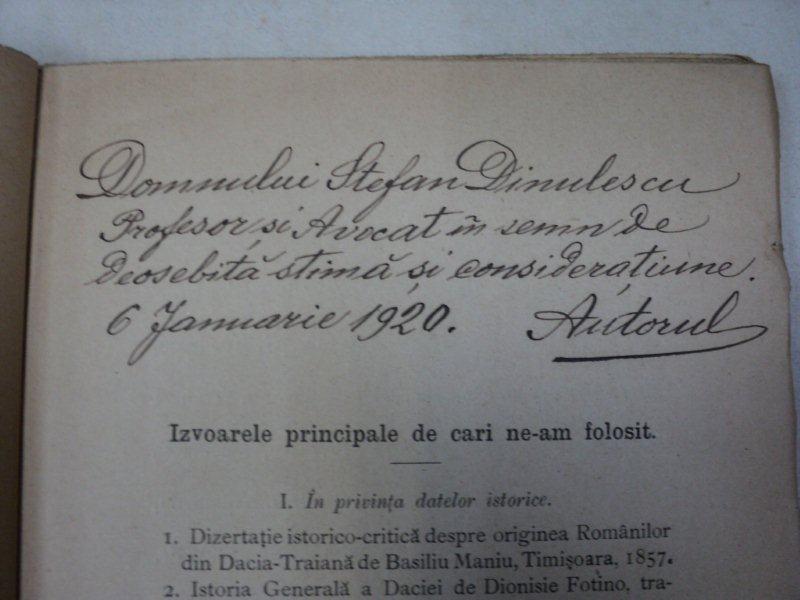 Domnului Stefan Dinulescu
Profesor și Avocat în semn de
deosebită stimă și considerațiune.
6 Januarie 1920. Autorul
Izvoarele principale de cari ne-am folosit.
I. În privința datelor istorice.
1. Dizertație istorico-critică despre originea Românilor
din Dacia-Traiană de Basiliu Maniu, Timișoara, 1857.
2. Istoria Generală a Daciei de Dionisie Fotino, tra-